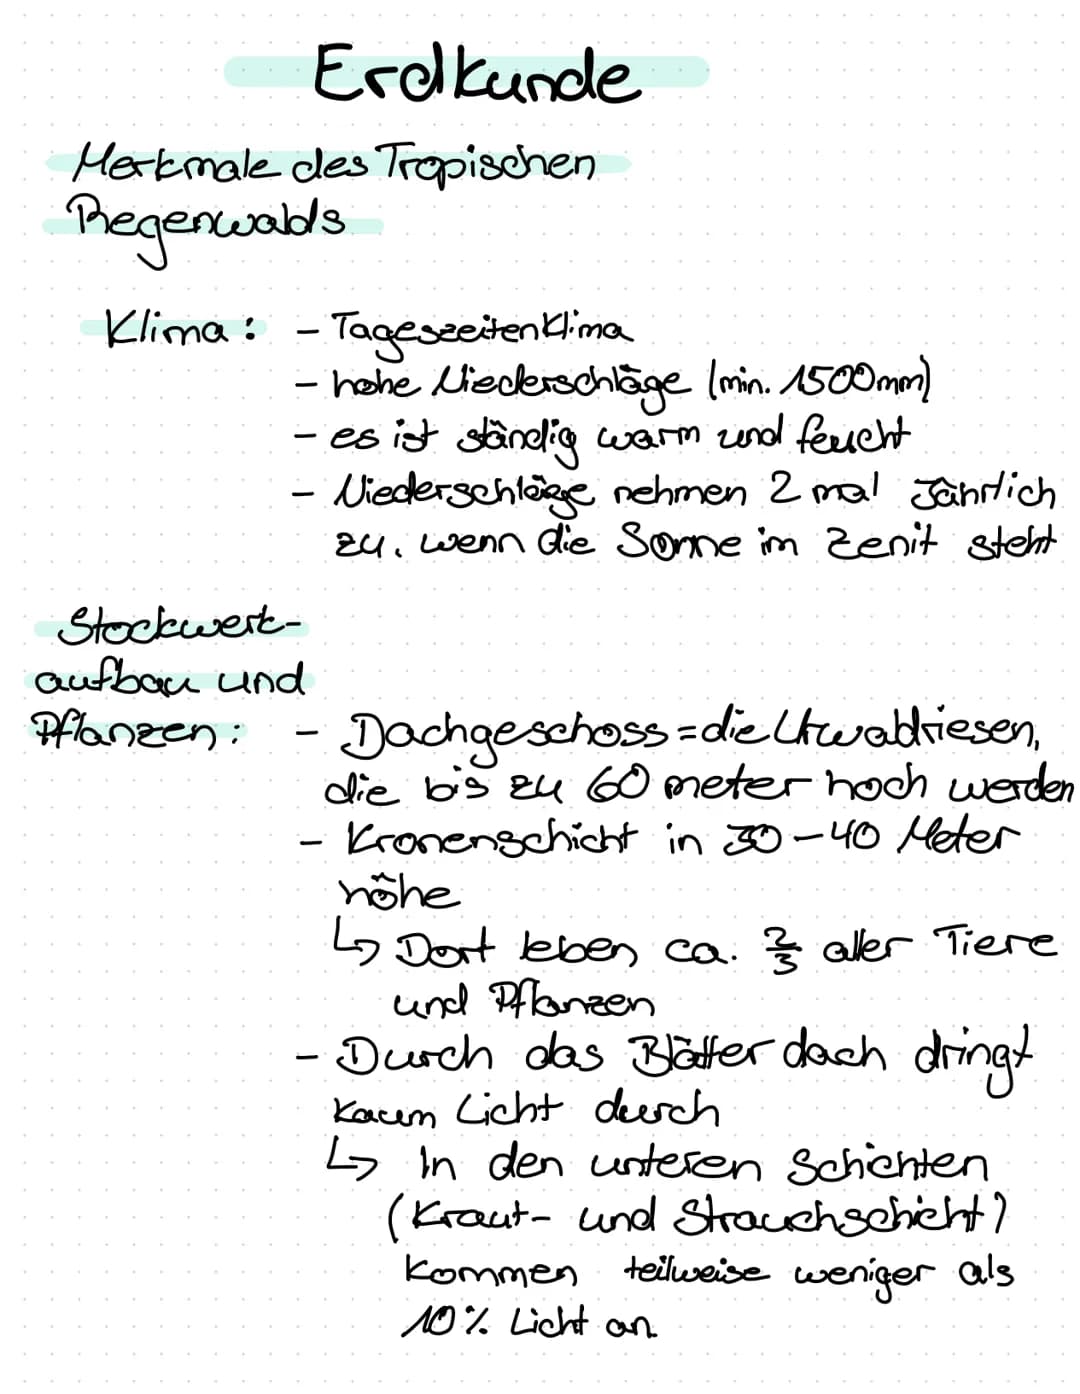 Erdkunde
Merkmale des Tropischen
Regenwalds
Klima: - Tageszeitenklima
- hohe Niederschläge (min. 1500mm)
- es ist ständig warm und feucht
- Niederschläge nehmen 2 mal Jährlich
zu, wenn die Sonne im Zenit steht
Stockwerk-
aufbau und
Pflanzen: - Dachgeschoss = die Urwaldriesen,
die bis zu 60 meter hoch werden
- Kronenschicht in 30-40 Meter
höhe
↳ Dort leben ca. 2/3 aller Tiere
und Pflanzen
- Durch das Blätterdach dringt
kaum Licht durch
↳ In den unteren Schichten
(Kraut- und Strauchschicht)
kommen teilweise weniger als
10% Licht an